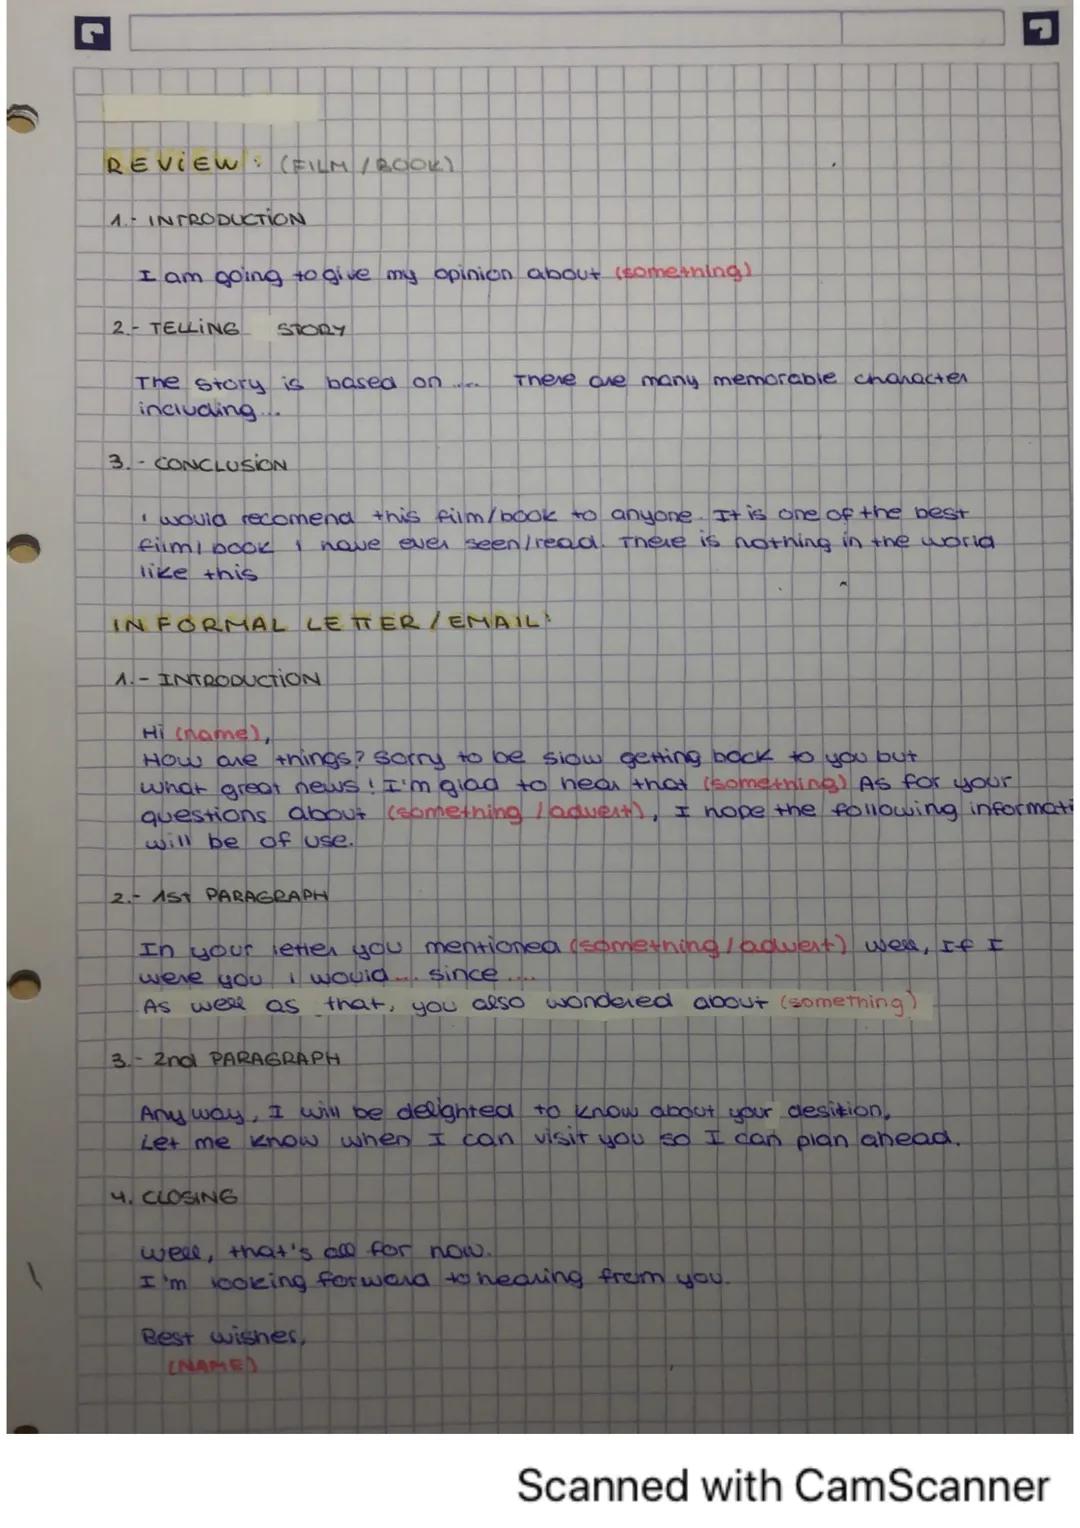 REVIEW: (FILM/BOOK)
1.- INTRODUCTION
I am going to give my opinion about (something)
2.- TELLING STORY
The story is based on .... There are many memorable character
including...
3.- CONCLUSION
I would recomend this film/book to anyone. It is one of the best
film/book I have ever seen/read. There is nothing in the world
like this
INFORMAL LETTER/EMAIL:
1.- INTRODUCTION
Hi (name),
How are things? Sorry to be slow getting back to you but
what great news! I'm glad to hear that (something) As for your
questions about (something/advert), I hope the following informati
will be of use.
2.- 1ST PARAGRAPH
In your letter you mentioned (something/advert) well, If I
were you I would.... since ....
As well as that, you also wondered about (something)
3.- 2nd PARAGRAPH
Anyway, I will be delighted to know about your desition,
Let me know when I can visit you so I can plan ahead.
4. CLOSING
Well, that's all for now.
I'm looking forward to hearing from you.
Best wishes,
(NAME)
Scanned with CamScanner